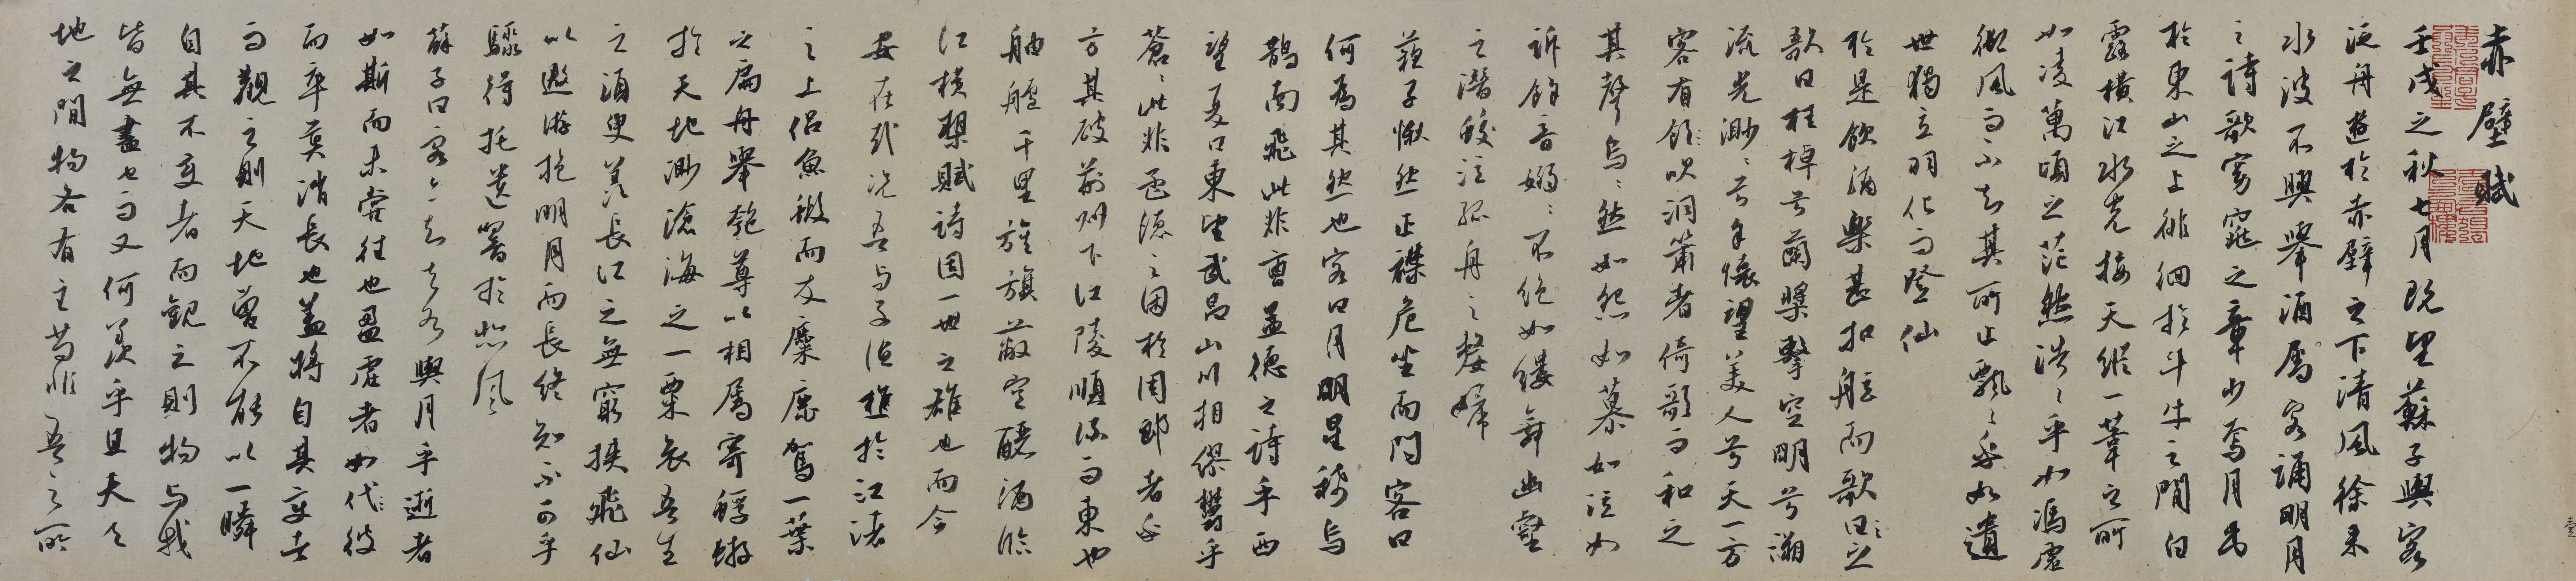 赤壁賦
壬戌之秋七月既望蘇子與客
泛舟遊於赤壁之下清風徐來
水波不興舉酒屬客誦明月
之詩歌窈窕之章少焉月出
於東山之上徘徊於斗牛之間白
露橫江水光接天縱一葦之所
如凌萬頃之茫然浩〻乎如馮虛
御風而不知其所止飄〻乎如遺
世獨立羽化而登仙
於是飲酒樂甚扣舷而歌曰之
歌曰桂棹兮蘭槳擊空明兮溯
流光渺〻兮予懷望美人兮天一方
客有吹洞簫者倚歌而和之
其聲烏〻然如怨如慕如泣如
訴餘音嫋〻不絕如縷舞幽壑
之潛蛟泣孤舟之嫠婦
蘇子愀然正襟危坐而問客曰
何為其然也客曰月明星稀烏
鵲南飛此非曹孟德之詩乎西
望夏口東望武昌山川相繆鬱乎
蒼〻此非孟德之困於周郎者乎
方其破荊州下江陵順流而東也
舳艫千里旌旗蔽空釃酒臨
江橫槊賦詩固一世之雄也而今
安在哉況吾与子漁樵於江渚
之上侶魚蝦而友麋鹿駕一葉
之扁舟舉匏尊以相屬寄蜉蝣
於天地渺滄海之一粟哀吾生
之須臾羨長江之無窮挾飛仙
以遨游抱明月而長終知不可乎
驟得托遺響於悲風
蘇子曰客亦知夫水與月乎逝者
如斯而未嘗往也盈虛者如代彼
而卒莫消長也蓋將自其變者
而觀之則天地曾不能以一瞬
自其不變者而觀之則物与我
皆無盡也而又何羨乎且夫天
地之間物各有主苟非吾之所